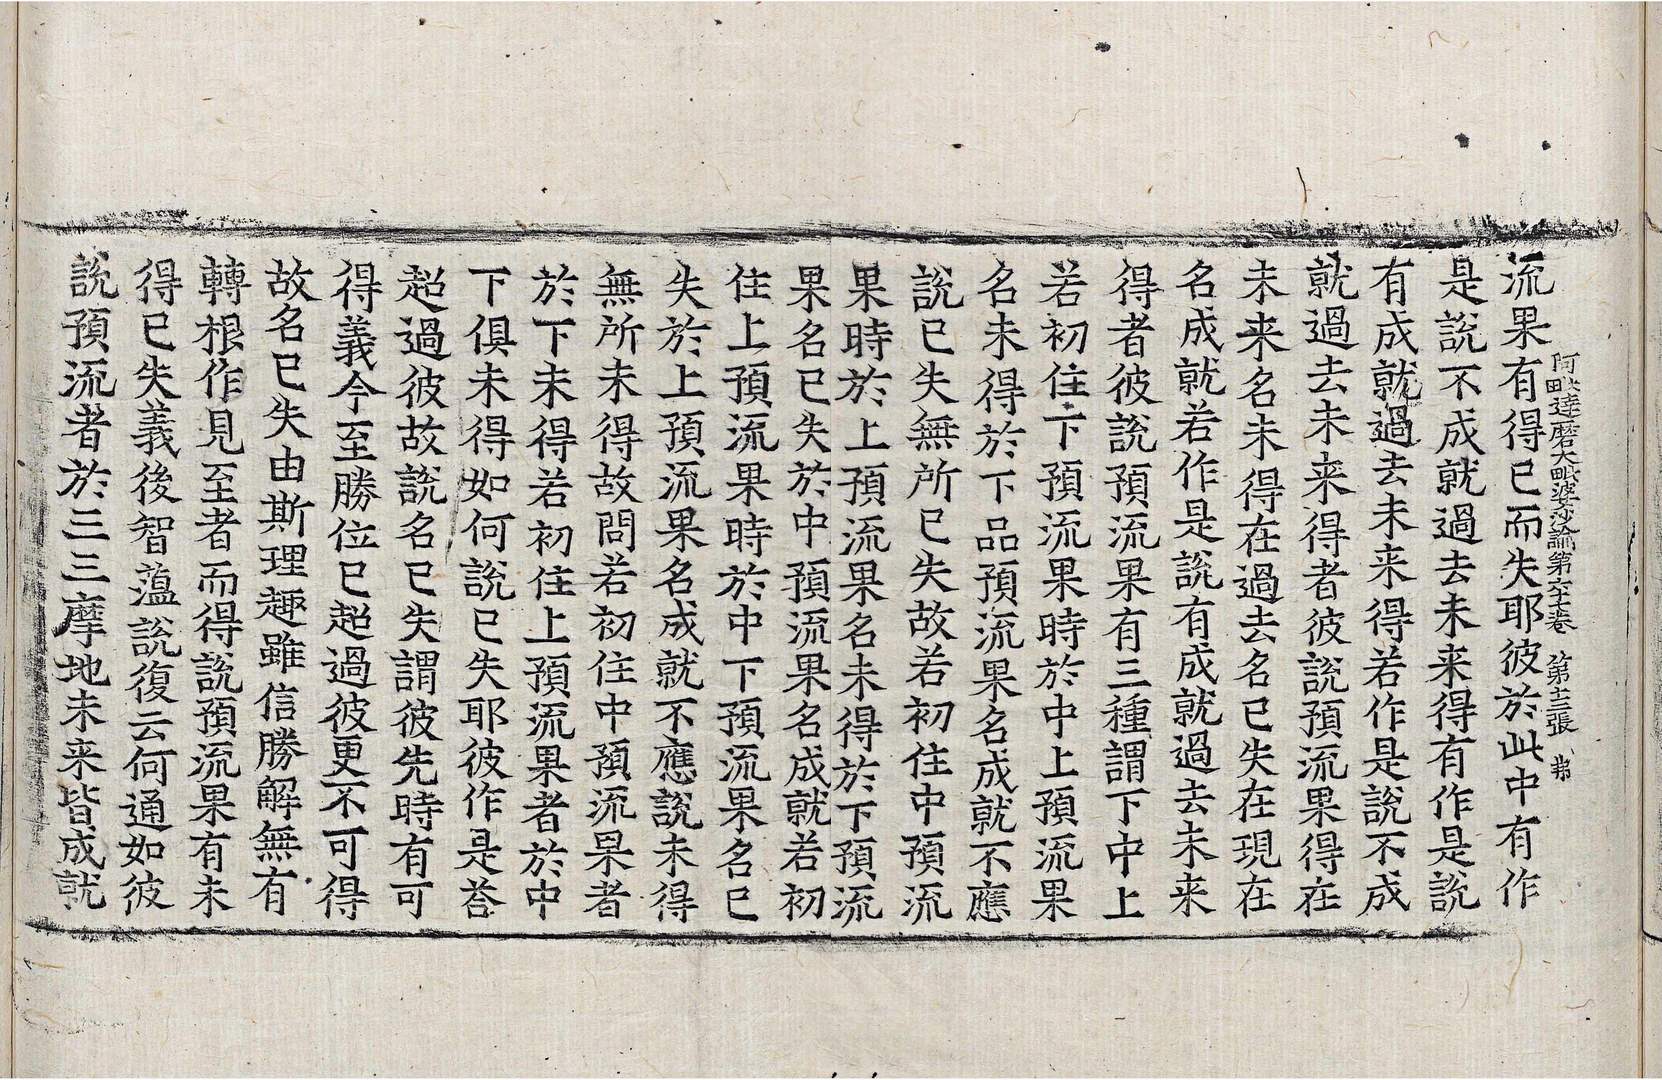 阿毗達磨大毗婆沙論第六十三卷 第十三張 弗
流果有得已而失耶彼於此中有作
是說不成就過去未来得有作是說
有成就過去未来得若作是說不成
就過去未来得者彼說預流果得在
未来名未得在過去名已失在現在
名成就若作是說有成就過去未来
得者彼說預流果有三種謂下中上
若初住下預流果時於中上預流果
名未得於下品預流果名成就不應
說已失無所已失故若初住中預流
果時於上預流果名未得於下預流
果名已失於中預流果名成就若初
住上預流果時於中下預流果名已
失於上預流果名成就不應說未得
無所未得故問若初住中預流果者
於下未得若初住上預流果者於中
下俱未得如何說已失耶彼作是荅
超過彼故說名已失謂彼先時有可
得義今至勝位已超過彼更不可得
故名已失由斯理趣雖信勝解無有
轉根作見至者而得說預流果有未
得已失義後智蕰說復云何通如彼
說預流者於三三摩地未来皆成就